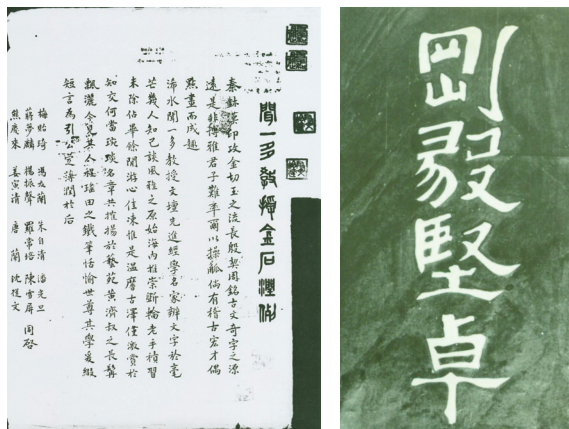 聞一多教授金石潤例
秦鉨漢印攻金切玉之流長殷契周銘古文奇字之源
遠是非博雅君子難率爾以操觚倘有稽古宏才偶
點畫而成趣
浠水聞一多教授文壇先進經學名家辨文字於毫
芒幾人知己談風雅之原始海內推崇斲輪老手積習
未除佔畢餘閒游心佳凍惟是溫麐古澤僅激賞於
知交何當琬琰名章共榷揚於藝苑黃濟叔之長髯
飄灑今見其人程瑤田之鐵筆恬愉世尊其學爰綴
短言為引公定薄潤於后
梅貽琦 馮友蘭 朱自清 潘光旦
蔣夢麟 楊振聲 羅常培 陳雪屏 同啓
熊慶來 姜寅清 唐蘭 沈從文
剛毅堅卓